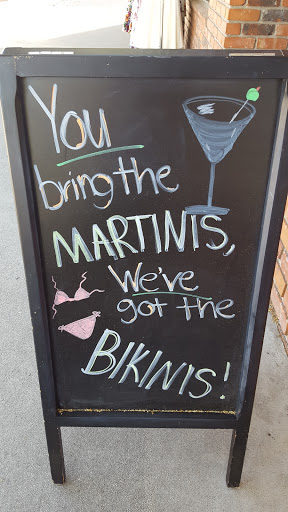 You
bring the
MARTINIS,
We've
got the
BIKINIS!